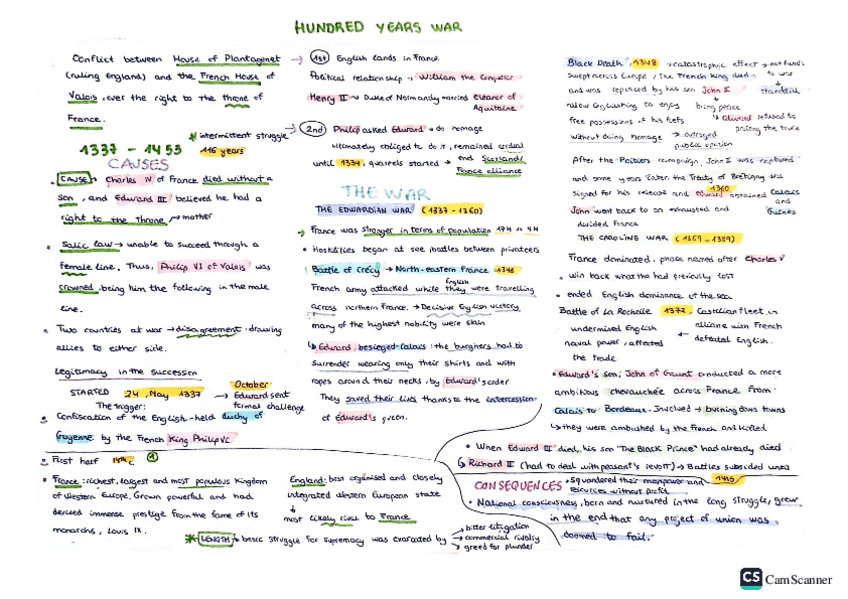 HUNDRED YEARS WAR
Conflict between House of Plantagenet
(ruling England) and the French House of
Valois, over the right to the throne of
France.
* intermittent struggle
1337 - 1453 116 years
CAUSES
CAUSE Charles IV of France died without a
son, and Edward III believed he had a
right to the throne → mother
Salic law → unable to succeed through a
female line. Thus, Philip VI of Valois was
crowned, being him the following in the male
line.
Two countries at war → disagreement: drawing
allies to either side.
Legitimacy in the succession
STARTED 24, May 1337 → October
Edward sent
formal challenge
The trigger:
Confiscation of the English-held duchy of
Guyenne by the French King Philip VI
First half 14th c. 1
France: richest, largest and most populous Kingdom
of Western Europe. Grown powerful and had
derived immense prestige from the fame of its
monarchs, Louis IX.
England: best organised and closely
integrated Western European state
most likely rival to France
* LENGTH basic struggle for supremacy was by
bitter litigation
commercial rivalry
greed for plunder
1st English lands in France.
Political relationship → William the Conqueror
Henry II → Duke of Normandy married Eleanor of
Aquitaine
2nd Philip asked Edward → do homage
ultimately obliged to do it, remained
until 1334, quarrels started → end Scotland
France alliance
THE WAR
THE EDWARDIAN WAR (1337 - 1360)
France was stronger in terms of population 17M vs 4M
Hostilities began at sea, battles between privateers
Battle of Crécy → North-eastern France 1346
French army attacked while English they were travelling
across northern France. → Decisive English victory,
many of the highest nobility were slain
Edward besieged Calais: the burghers had to
surrender wearing only their shirts and with
ropes around their necks, by Edward's order
They saved their lives thanks to the intercession
of Edward's queen.
Black Death, 1348 → catastrophic effect → not funds
to war
swept across Europe / The French King died
and was replaced by his son John I standstill
allow English king to enjoy bring peace
free possessions of his fiefs Edward refused to
prolong the truce
without doing homage → outraged
public opinion
After the Poitiers campaign, John I was captured
and some years later the Treaty of Brétigny was
1360
signed for his release and Edward obtained Calais
and
Guînes
John went back to an exhausted and
divided France
THE CAROLINE WAR (1369 - 1389)
France dominated, phase named after Charles V
win back what the had previously lost
ended English dominance of the sea
Battle of La Rochelle 1372. Castilian fleet in
undermined English alliance with French
naval power, affected defeated English.
the trade
Edward's son; John of Gaunt conducted a more
ambitious chevauchée across France from
Calais to Bordeaux. Involved → burning down towns
they were ambushed by the French and killed
When Edward III died, his son "The Black Prince" had already died
Richard II (had to deal with peasant's revolt) → Battles subsided until
1415
CONSEQUENCES • Squandered their manpower and
resources without profit.
National consciousness, born and nurtured in the long struggle, grew
in the end that any project of union was
doomed to fail.
CS CamScanner